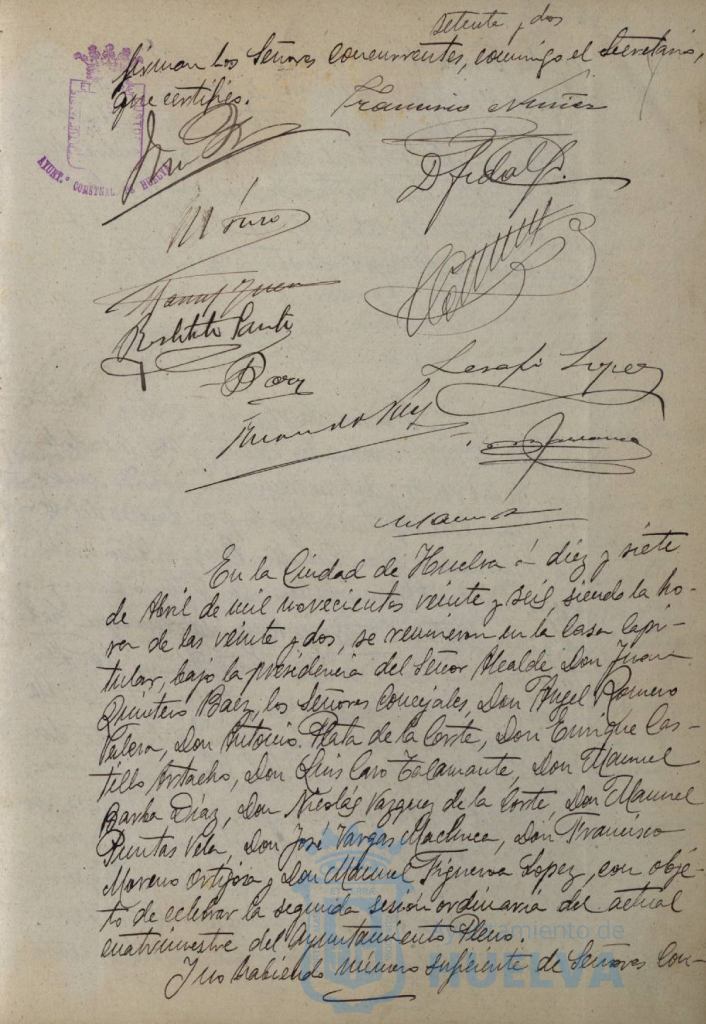 setenta y dos
firman los Señores concurrentes, conmigo el Secretario,
que certifico.
Francisco Nuñez
AYUNT.º CONSTNAL. DE HUELVA
D Fidalgo
Restituto
Serafin Lopez
En la Ciudad de Huelva á diez y siete
de Abril de mil novecientos veinte y seis, siendo la ho-
ra de las veinte y dos, se reunieron en la Casa Capi-
tular, bajo la presidencia del Señor Alcalde Don Juan
Quintero Baez, los Señores Concejales, Don Angel Romero
Valera, Don Antonio Plata de la Corte, Don Enrique Cas-
tillo Astacho, Don Luis Caro Talamante, Don Manuel
Barba Díaz, Don Nicolás Vazquez de la Corte, Don Manuel
Puntas Vela, Don José Vargas Machuca, Don Francisco
Moreno Ortijosa y Don Manuel Figueroa Lopez, con obje-
to de celebrar la segunda sesión ordinaria del actual
cuatrimestre del Ayuntamiento Pleno.
Y no habiendo número sufiente de Señores Con-
Ayuntamiento de
HUELVA